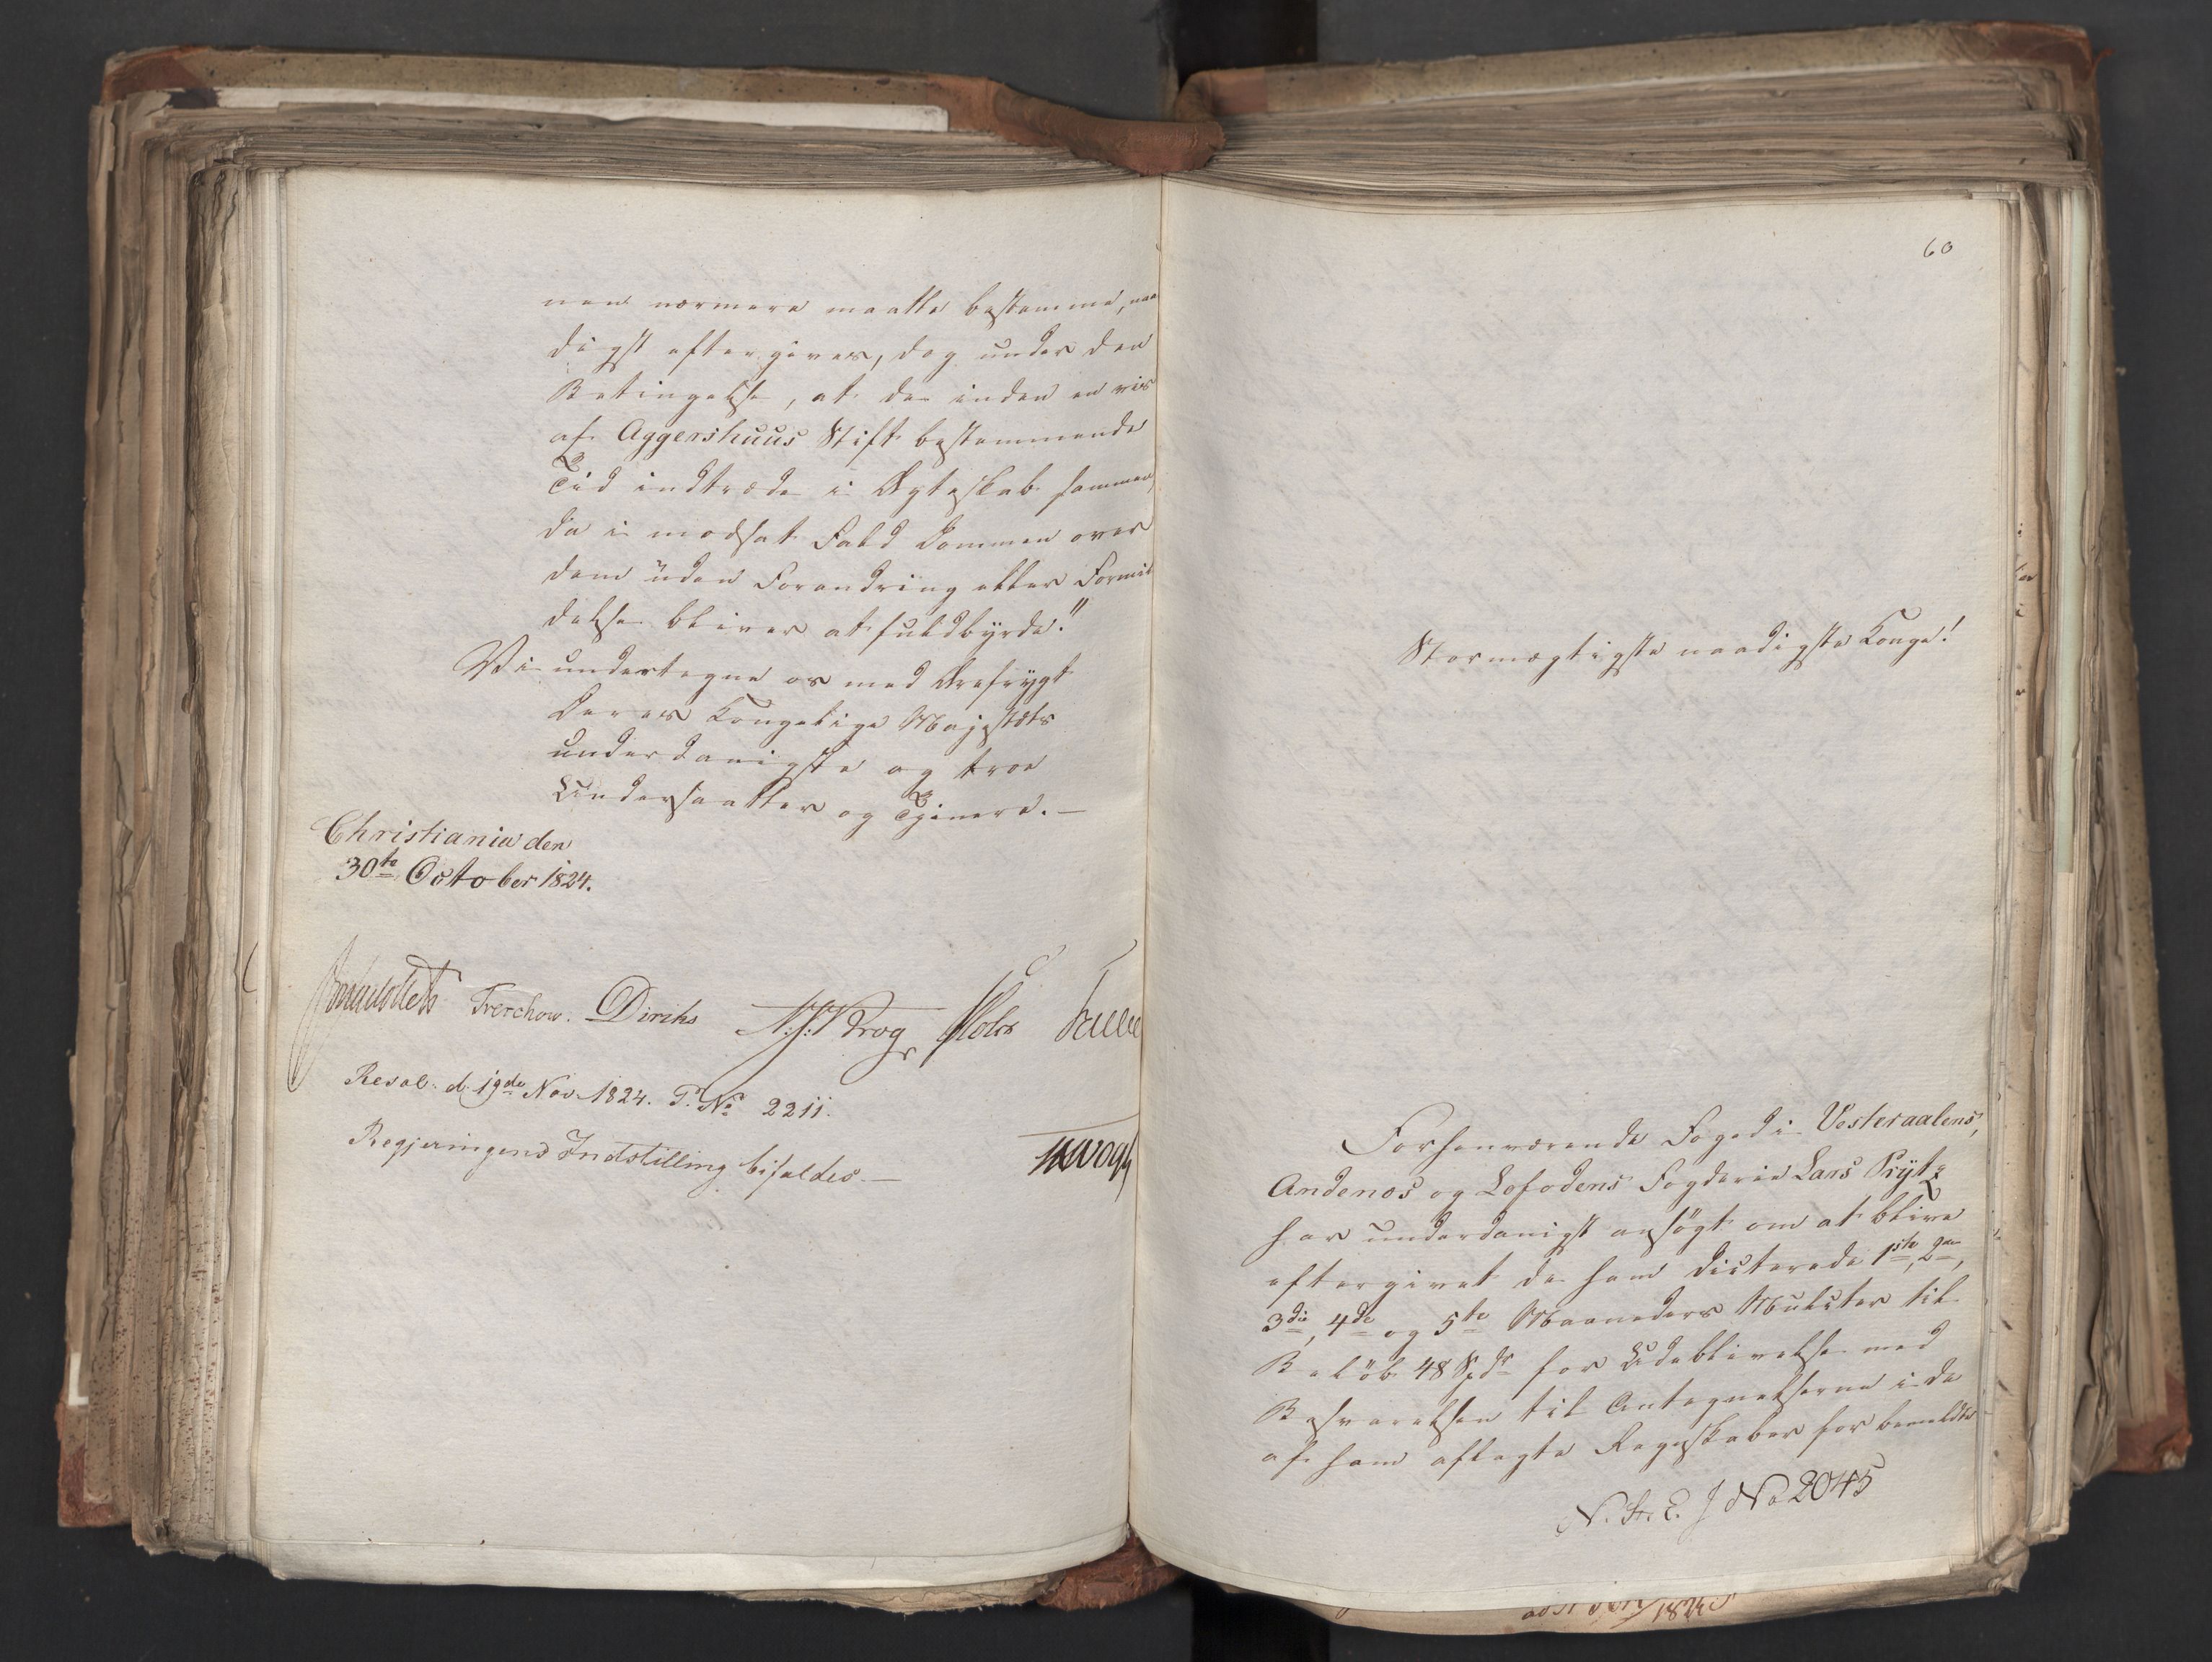 nen nærmere maatte bestemme, naa
digst eftergives, dog under den
Betingelse, at de inden en vis
af Aggershuus Stift bestemmende
Tid indtræde i Ægteskab sammen,
da i modsat Fald Dommen over
dem uden Forandring eller Formil
delse bliver at fuldbyrde."
Vi undertegne os med Ærefrygt
Deres Kongelige Majestæts
underdanigste og troe
Undersaatter og Tjenere. —
Christiania den
30te October 1824.
Treschow. Diriks
Resol: d. 19de Nov. 1824. P. No 2211.
Regjeringens Indstilling bifaldes. —
60
Stormægtigste naadigste Konge!
Forhenværende Foged i Vesteraalens,
Andenæs og Lofodens Fogderie Lars Prytz
har underdanigst ansøgt om at blive
eftergivet de ham dicterede 1ste, 2den,
3die, 4de og 5te Maaneders Mulcter til
Beløb 48 Spdr for Udeblivelse med
Besvarelsen til Antegnelserne i de
af ham aflagte Regnskaber for bemeldte
No 2045